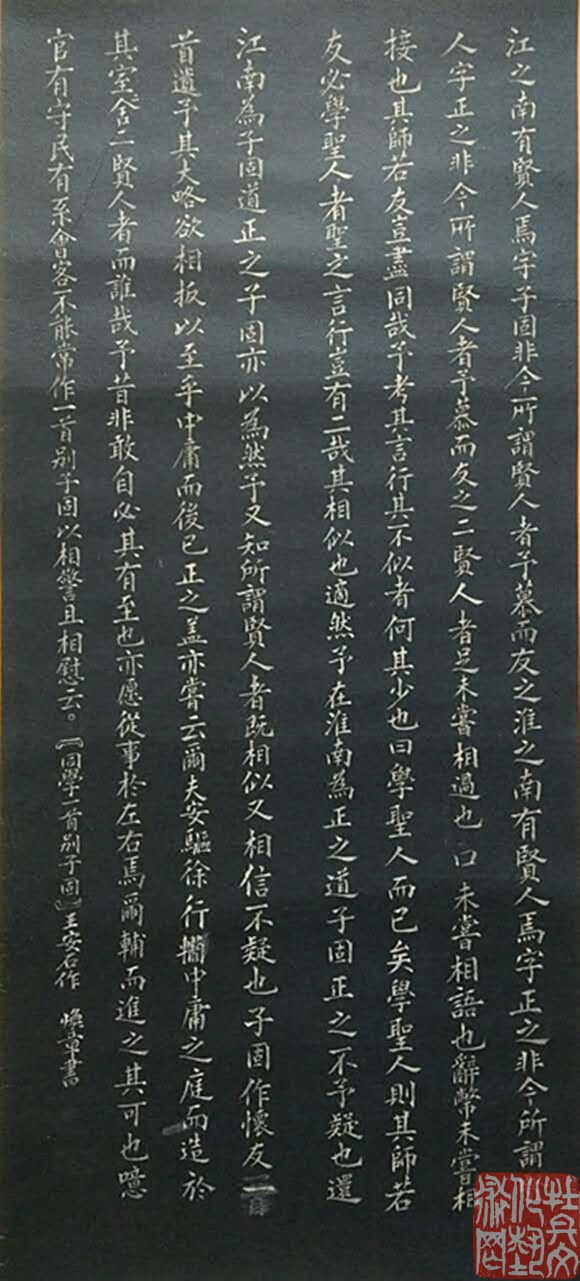 江之南有賢人焉字子固非今所謂賢人者予慕而友之淮之南有賢人焉字正之非今所謂賢
人字正之非今所謂賢人者予慕而友之二賢人者足未嘗相過也口未嘗相語也辭幣未嘗相
接也其師若友豈盡同哉予考其言行其不似者何其少也曰學聖人而已矣學聖人則其師若
友必學聖人者聖之言行豈有二哉其相似也適然予在淮南為正之道子固正之不予疑也還
江南為子固道正之子固亦以為然予又知所謂賢人者既相似又相信不疑也子固作懷友一首
首遺予其大略欲相扳以至乎中庸而後已正之蓋亦嘗云爾夫安驅徐行轥中庸之庭而造於
其室舍二賢人者而誰哉予昔非敢自必其有至也亦愿從事於左右焉爾輔而進之其可也噫
官有守民有系會客不能常作一首別子固以相警且相慰云。《同學一首別子固》王安石作 煥章書